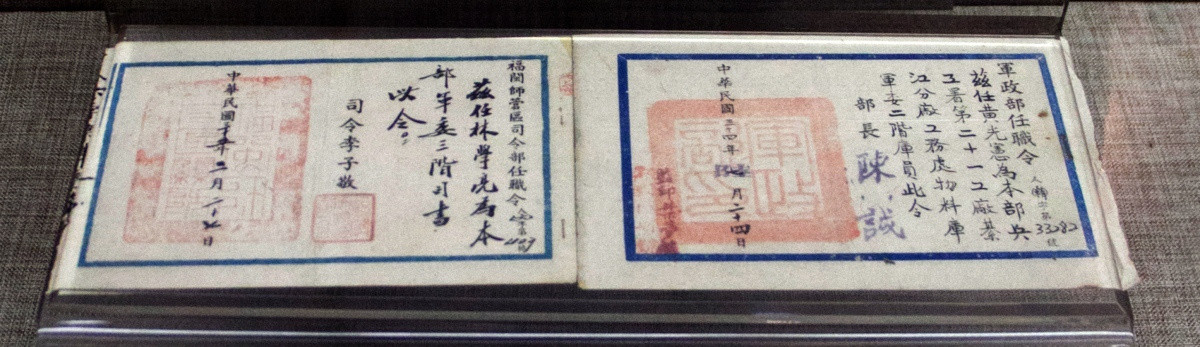 軍政部任職令 人 字第33282號
茲任黃光憲為本部兵
工署第二十一工廠綦
江分廠工務處物料庫
軍委二階庫員此令
部長 陳誠
中華民國三十四年 七月二十四日
福閩師管區司令部任職令 字第 號
茲任林學亮為本
部軍委三階司書
以令。
司令李子敬
中華民國 年二月二十七日